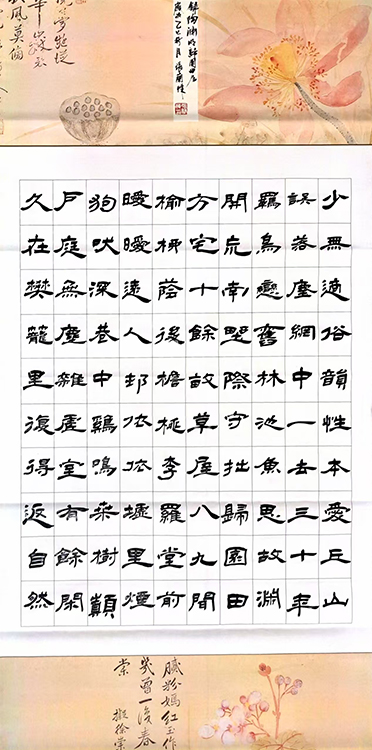 錄陶淵明歸園田居
少無適俗韻性本愛丘山
誤落塵網中一去三十年
羈鳥戀舊林池魚思故淵
開荒南野際守拙歸園田
方宅十餘畝草屋八九間
榆柳蔭後檐桃李羅堂前
曖曖遠人邨依依墟里煙
狗吠深巷中鷄鳴桑樹顛
戶庭無塵雜虛室有餘閑
久在樊籠里復得返自然
膩粉嫣紅玉作